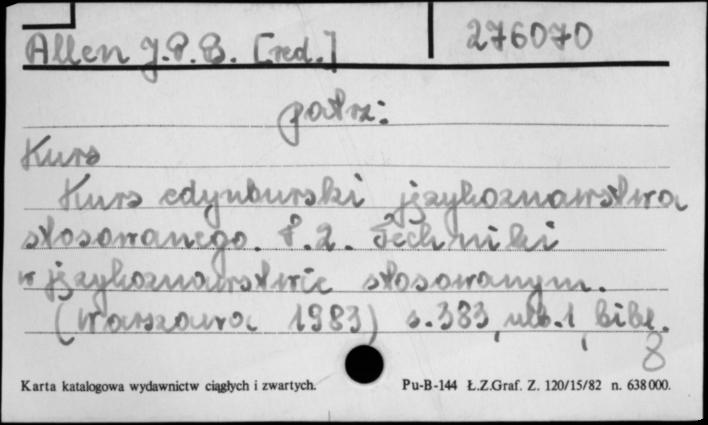 Allen J.P.B. [red.] 276070
patrz:
Kurs
Kurs edynburski językoznawstwa
stosowanego. T.2. Techniki
w językoznawstwie stosowanym.
(Warszawa 1983) s.383, nlb.1, bibl.
8
Karta katalogowa wydawnictw ciągłych i zwartych. Pu-B-144 Ł.Z.Graf. Z. 120/15/82 n. 638000.